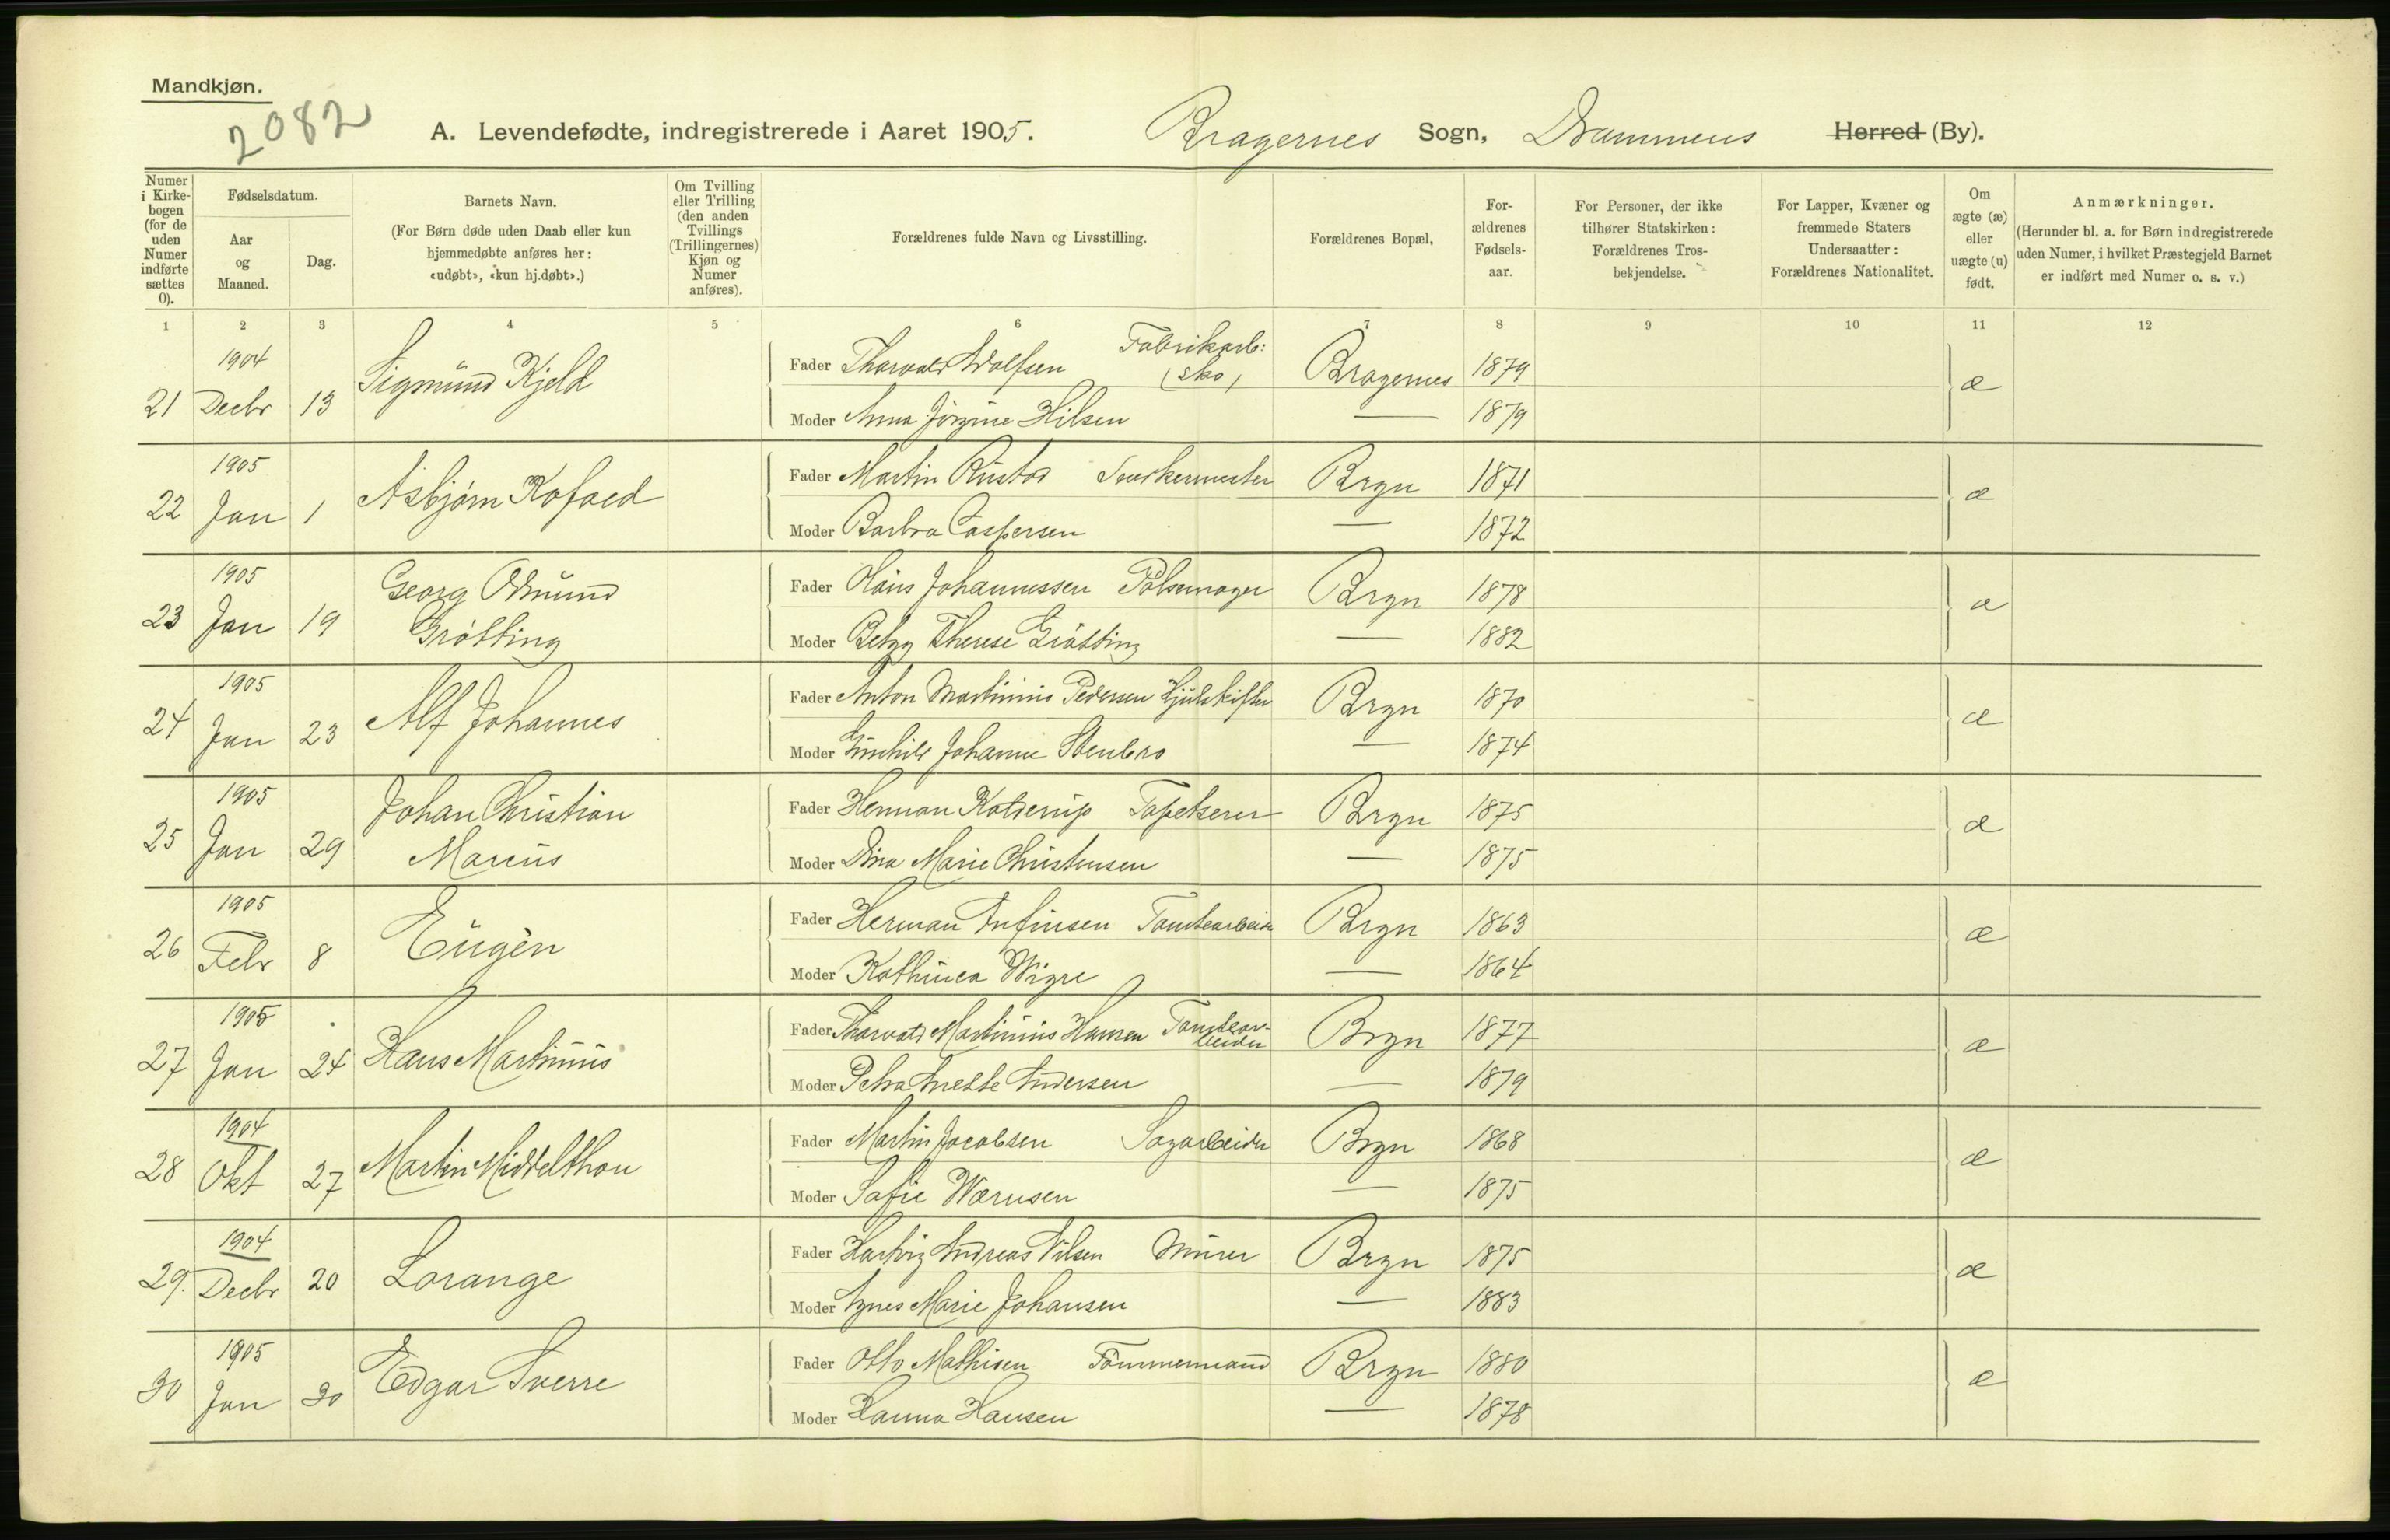 Mandkjøn.
2082
A. Levendefødte, indregistrerede i Aaret 1905. Bragernes Sogn, Drammens Herred (By).
Numer i Kirkebogen (for de uden Numer indførte sættes 0).
Fødselsdatum.
Aar og Maaned.
Dag.
Barnets Navn.
(For Børn døde uden Daab eller kun hjemmedøbte anføres her: «udøbt», «kun hj.døbt».)
Om Tvilling eller Trilling (den anden Tvillings (Trillingernes) Kjøn og Numer anføres).
Forældrenes fulde Navn og Livsstilling.
Forældrenes Bopæl,
Forældrenes Fødselsaar.
For Personer, der ikke tilhører Statskirken: Forældrenes Trosbekjendelse.
For Lapper, Kvæner og fremmede Staters Undersaatter: Forældrenes Nationalitet.
Om ægte (æ) eller uægte (u) født.
Anmærkninger.
(Herunder bl. a. for Børn indregistrerede uden Numer, i hvilket Præstegjeld Barnet er indført med Numer o. s. v.)
1 2 3 4 5 6 7 8 9 10 11 12
21 1904 Decbr 13 Sigmund Kjeld Fader Thorvald Adolfsen Fabrikarb: (sko) Bragernes 1879 æ
Moder Anna Jørgine Hilsen — 1879
22 1905 Jan 1 Asbjørn Kofoed Fader Martin Rustad Snedkermester Brgn 1871 æ
Moder Barbra Caspersen — 1872
23 1905 Jan 19 Georg Odmund Grøtting Fader Hans Johannessen Pølsemager Brgn 1878 æ
Moder Betzy Therese Grøtting — 1882
24 1905 Jan 23 Alf Johannes Fader Anton Martinius Pedersen Hjulskifter Brgn 1870 æ
Moder Gunhild Johanne Stenbro — 1874
25 1905 Jan 29 Johan Christian Marcus Fader Herman Kolderup Tapetserer Brgn 1875 æ
Moder Dina Marie Christensen — 1875
26 1905 Febr 8 Eugèn Fader Herman Anfinsen Tomtearbeider Brgn 1863 æ
Moder Kathinca Wigre — 1864
27 1905 Jan 24 Hans Martinius Fader Thorvald Martinius Hansen Tomtearbeider Brgn 1877 æ
Moder Petra Anette Andersen — 1879
28 1904 Okt 27 Martin Middelthon Fader Martin Jacobsen Sagarbeider Brgn 1868 æ
Moder Sofie Wærnsen — 1875
29. 1904 Decbr 20 Lorange Fader Hartvig Andreas Nilsen Murer Brgn 1875 æ
Moder Agnes Marie Johansen — 1883
30 1905 Jan 30 Edgar Sverre Fader Otto Mathisen Tømmermand Brgn 1880 æ
Moder Hanna Hansen — 1878